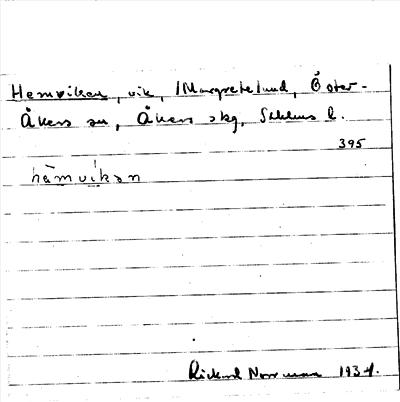 Hemviken, vik, Margretelund, Öster-
Åkers sn, Åkers skg, Sthlms l.
395
hämvikən
Rickard Norrman 1934.